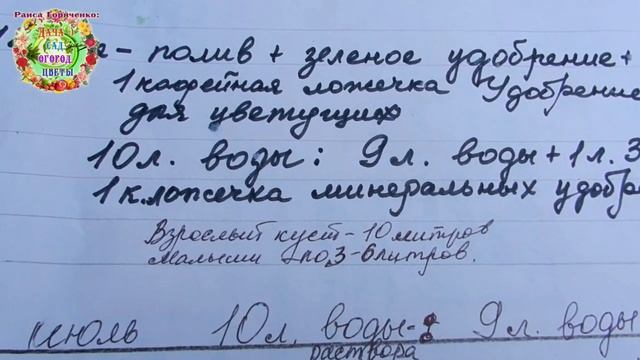 Раиса Горяченко:
ДАЧА
САД
ОГОРОД
ЦВЕТЫ
- полив + зеленое удобрение +
1 кофейная ложечка Удобрение
для цветущих
10л. воды: 9л. воды + 1л. З
1 к.ложечка минеральных удобр
Взрослый куст - 10 литров
Малыши по 3-6 литров.
июль 10л. воды - 9л. воды
раствора